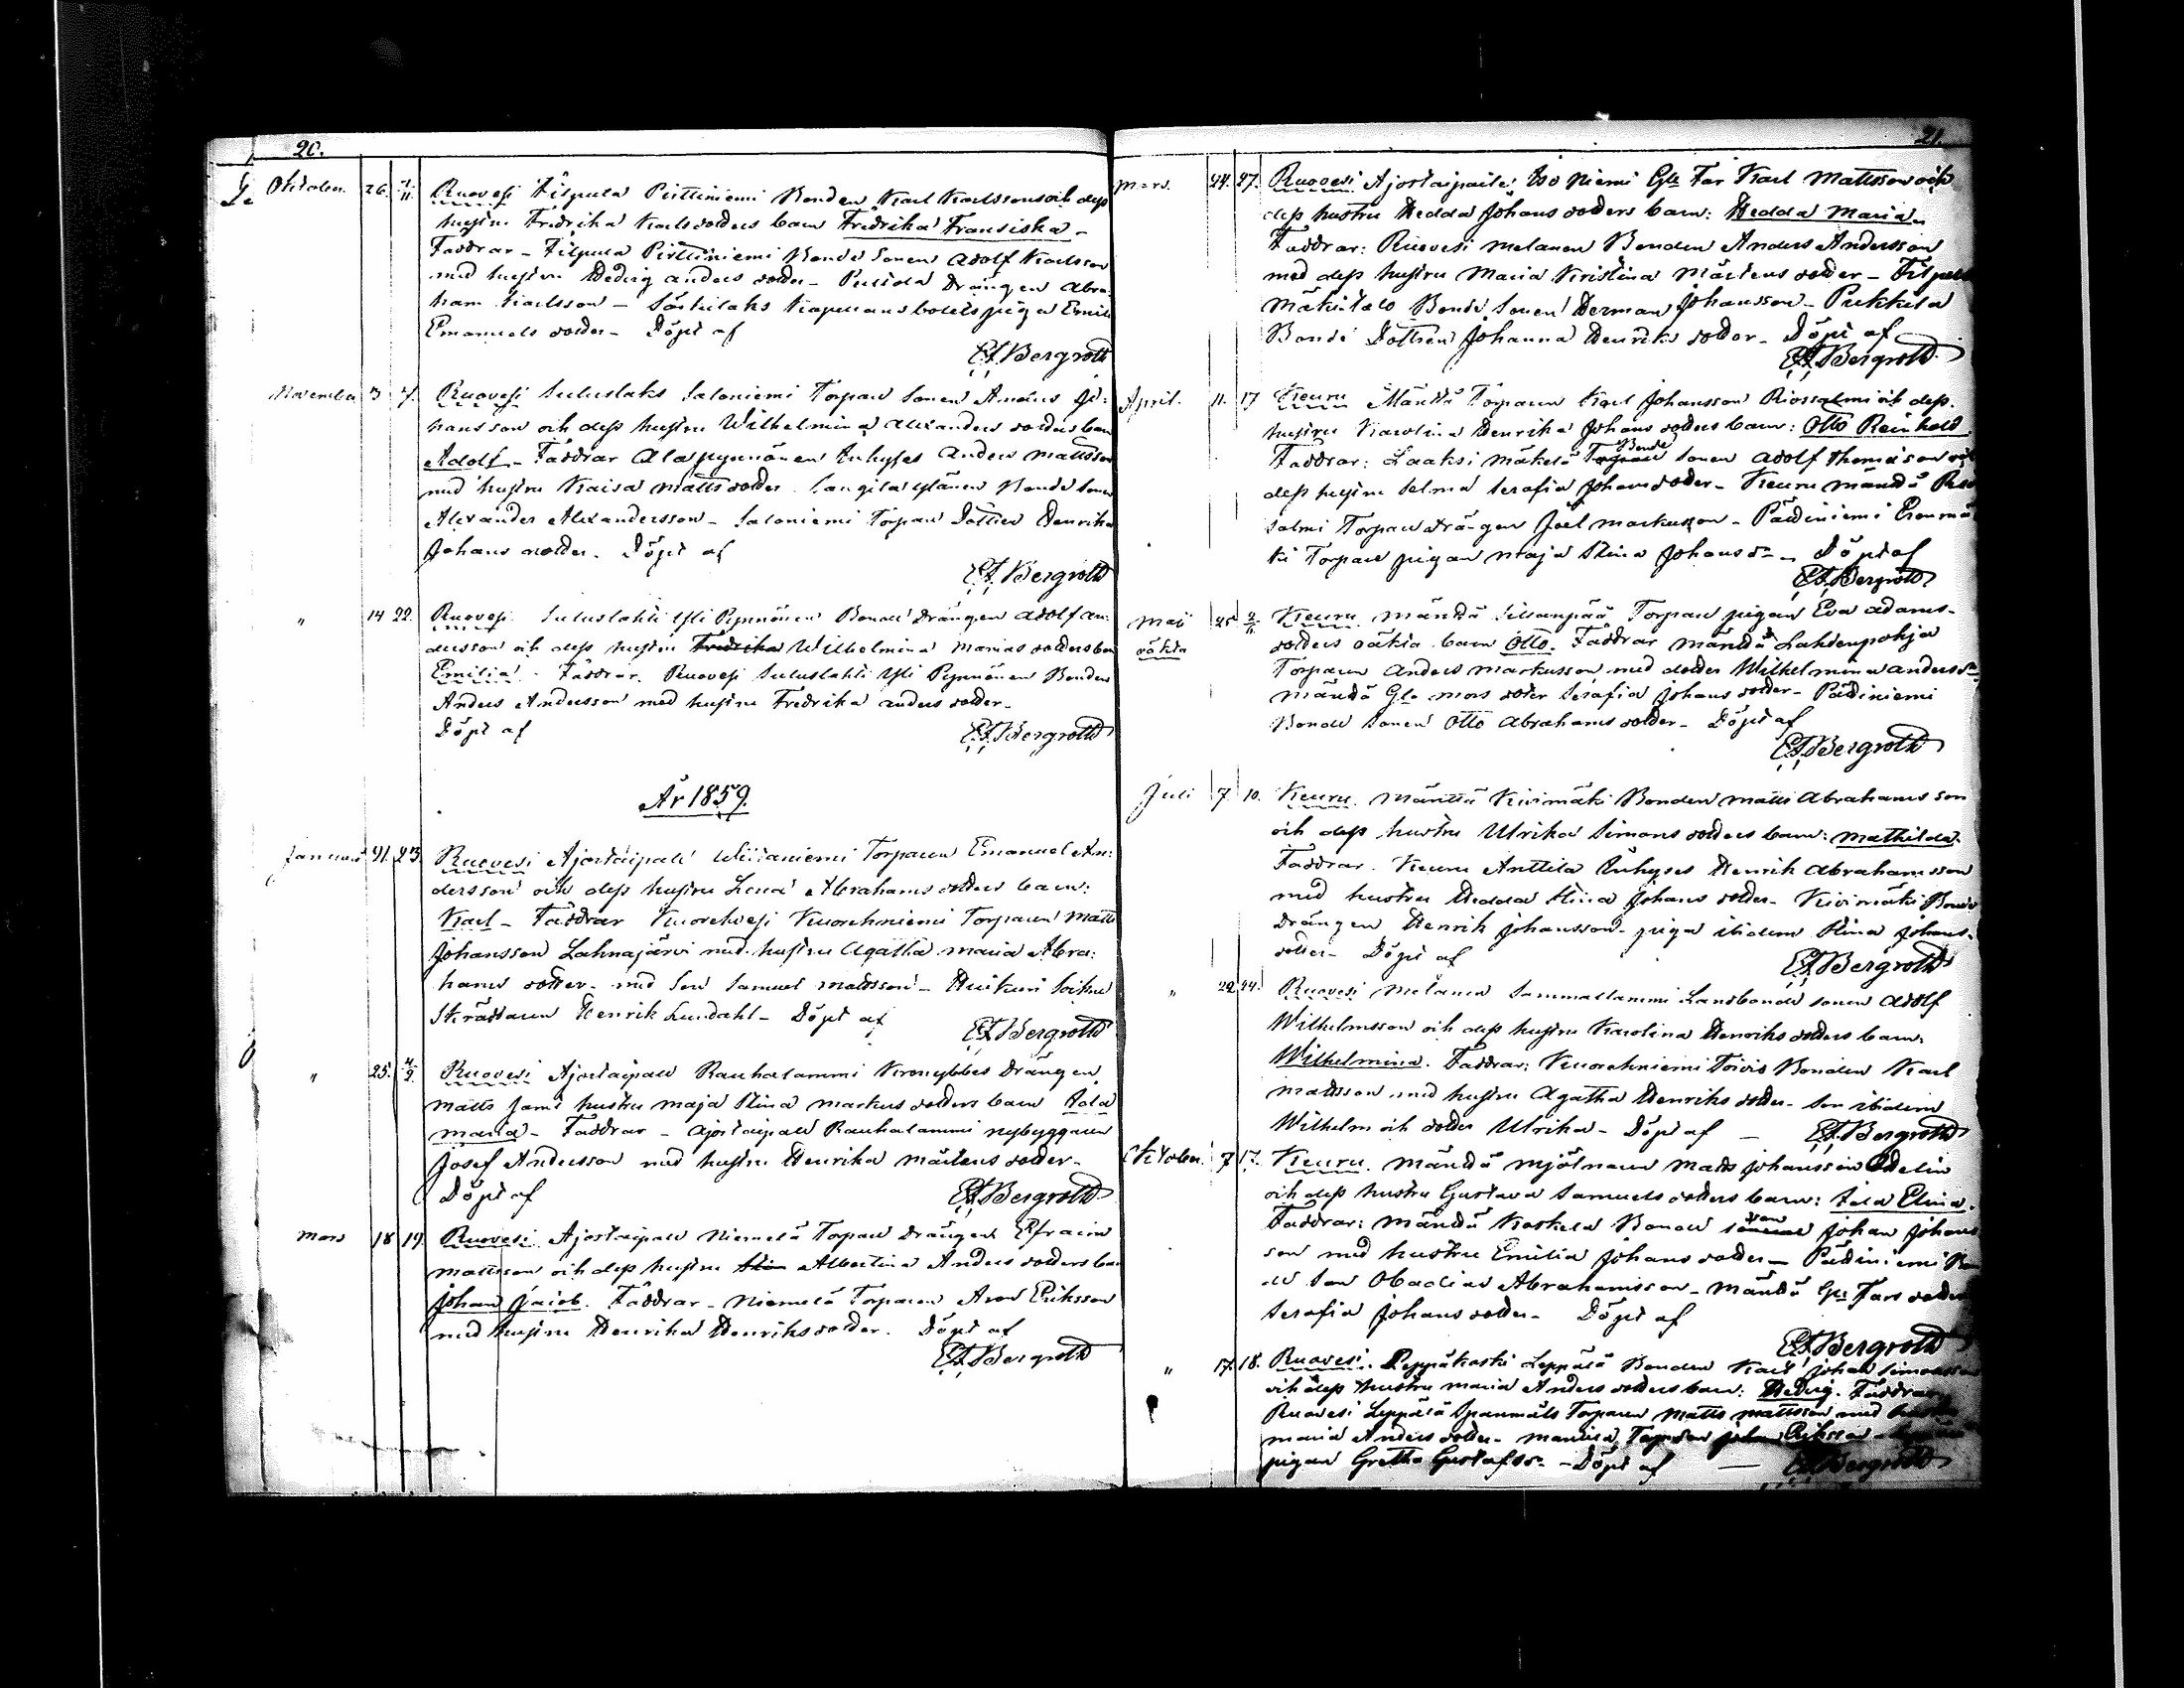 20.
Oktober. 26. 7/11 Ruovesi Filpula Pirttiniemi Bonden Karl Karlsson och dess
hustru Fredrika Karlsdotters barn Fredrika Fransiska –
Faddrar – Filpula Pirttiniemi Bonde Sonen Adolf Karlsson
med hustru Hedvig Andersdotter – Drängen Abra-
ham Karlsson – pigan Emili
Emanuels dotter – Döpt af
E.F. Bergroth
November 3 7. Ruovesi Suluslaks Saloniemi Torpare Sonen Anders Jo:
hansson och dess hustru Wilhelmina Alexanders dotters barn
Adolf – Faddrar Ala Pynnönen Inhyses Anders Mattsson
med hustru Kaisa Matts dotter. Bonde Sonen
Alexander Alexandersson – Saloniemi Torpare Dottren Henrika
Johans dotter. Döpt af
E.F. Bergroth
" 14 22. Ruovesi Suluslahti Yli Pynnönen Bonde Drängen Adolf An:
dersson och dess hustru Fredrika Wilhelmina Marias dotters barn
Emilia. Faddrar. Ruovesi Suluslahti Yli Pynnönen Bonden
Anders Andersson med hustru Fredrika Anders dotter –
Döpt af E.F. Bergroth
År 1859.
Januari 21. 23. Ruovesi Ajostaipale Torparen Emanuel An:
dersson och dess hustru Lena Abrahams dotters barn:
Karl – Faddrar Kuorehvesi Kuorehniemi Torparen Matts
Johansson Lahnajärvi med hustru Agatha Maria Abra:
hams dotter – med Son Samuel Mattsson –
Skräddaren Henrik Lundahl – Döpt af
E.F. Bergroth
" 25. 4/2 Ruovesi Ajostaipale Rauhalammi Kronybbes Drängen
Matts Jami hustru Maja Stina Markus dotters barn Ida
Maria – Faddrar – Ajostaipale Rauhalammi nybyggaren
Josef Andersson med hustru Henrika Mårtens dotter –
Döpt af E.F. Bergroth
Mars 18 19. Ruovesi Ajostaipale Niemelä Torpare Drängen Efraim
Mattsson och dess hustru Stina Albertina Anders dotters barn
Johan Jacob. Faddrar – Niemelä Torparen Aron Eriksson
med hustru Henrika Henriksdotter. Döpt af
E.F. Bergroth
21.
Mars. 24. 27. Ruovesi Ajostaipale Iso Niemi Far Karl Mattsson och
dess hustru Hedda Johans dotters barn: Hedda Maria –
Faddrar: Ruovesi Melanen Bonden Anders Andersson
med dess hustru Maria Kristina Mårtens dotter –
Mäkitalo Bonde Sonen Herman Johansson – Pukkila
Bonde Dottren Johanna Henriks dotter – Döpt af
E.F. Bergroth
April. 11. 17 Keuru Mänttä Torparen Karl Johansson Riossalmi och dess
hustru Karolina Henrika Johans dotters barn: Otto Reinhold.
Faddrar: Laaksi Mäkelä Torpare Bonde Sonen Adolf Thomasson och
dess hustru Selma Serafia Johans dotter – Keuru Mänttä Rio
salmi Torpare drängen Joel Markusson – Pädiniemi
ki Torpare pigan Maja Stina Johansdr – Döpt af
E.F. Bergroth
Maj 25 2/6 Keuru Mänttä Sillanpää Torpare pigan Eva Adams-
oäkta dotters oäkta barn Otto. Faddrar Mänttä Lahdenpohja
Torparen Anders Markusson med dotter Wilhelmina Andersdr,
Mänttä Gla Mors dotter Serafia Johans dotter – Pädiniemi
Bonde Sonen Otto Abrahams dotter – Döpt af
E.F. Bergroth
Juli 7. 10. Keuru. Mänttä Kivimäki Bonden Matts Abrahamsson
och dess hustru Ulrika Simons dotters barn: Mathilda.
Faddrar. Keuru Anttila Inhyses Henrik Abrahamsson
med hustru Hedda Stina Johans dotter – Kivimäki Bonde
Drängen Henrik Johansson – piga ibidem Stina Johans-
dotter – Döpt af E.F. Bergroth
" 22 24. Ruovesi Melanen Sammallammi Landbonde Sonen Adolf
Wilhelmsson och dess hustru Karolina Henriks dotters barn:
Wilhelmina. Faddrar: Kuorehniemi Toivis Bonden Karl
Mattsson med hustru Agatha Henriks dotter – Son ibidem
Wilhelm och dotter Ulrika – Döpt af – E.F. Bergroth
Oktober. 7 17. Keuru. Mänttä Mjölnaren Matts Johansson Edelin
och dess hustru Gustava Samuels dotters barn: Ida Elina.
Faddrar: Mänttä Koskela Bonden Johan Johans
son med hustru Emilia Johans dotter – Pädiniemi Bon
de Son Obadias Abrahamsson – Mänttä Gl: Fars dotter
Serafia Johans dotter – Döpt af
E.F. Bergroth
" 17. 18. Ruovesi. Leppäkoski Leppälä Bonden Karl Johan Simonsson
och dess hustru Maria Anders dotters barn: Hedvig. Faddrar
Ruovesi Leppälä Torparen Matts Mattsson med hustru
Maria Anders dotter – Torparen Johan Eriksson –
pigan Gretha Gustafsdr – Döpt af — E.F. Bergroth